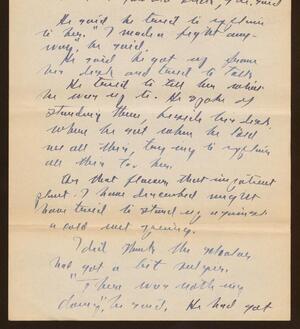 He said he tried to explain
to her. "I made a fight any-
way," he said.
He said he got up from
her desk and tried to talk
He tried to tell her what
he was up to. He spoke of
standing there, beside her desk
where he sat when he told
me all this, trying to explain
all this for her.
that flowing that impatient
plant. I have described might
have tried to stand up against
a cold wet spring.
I didn't think the
had got a bit
"There was nothing
doing," he said. He had got